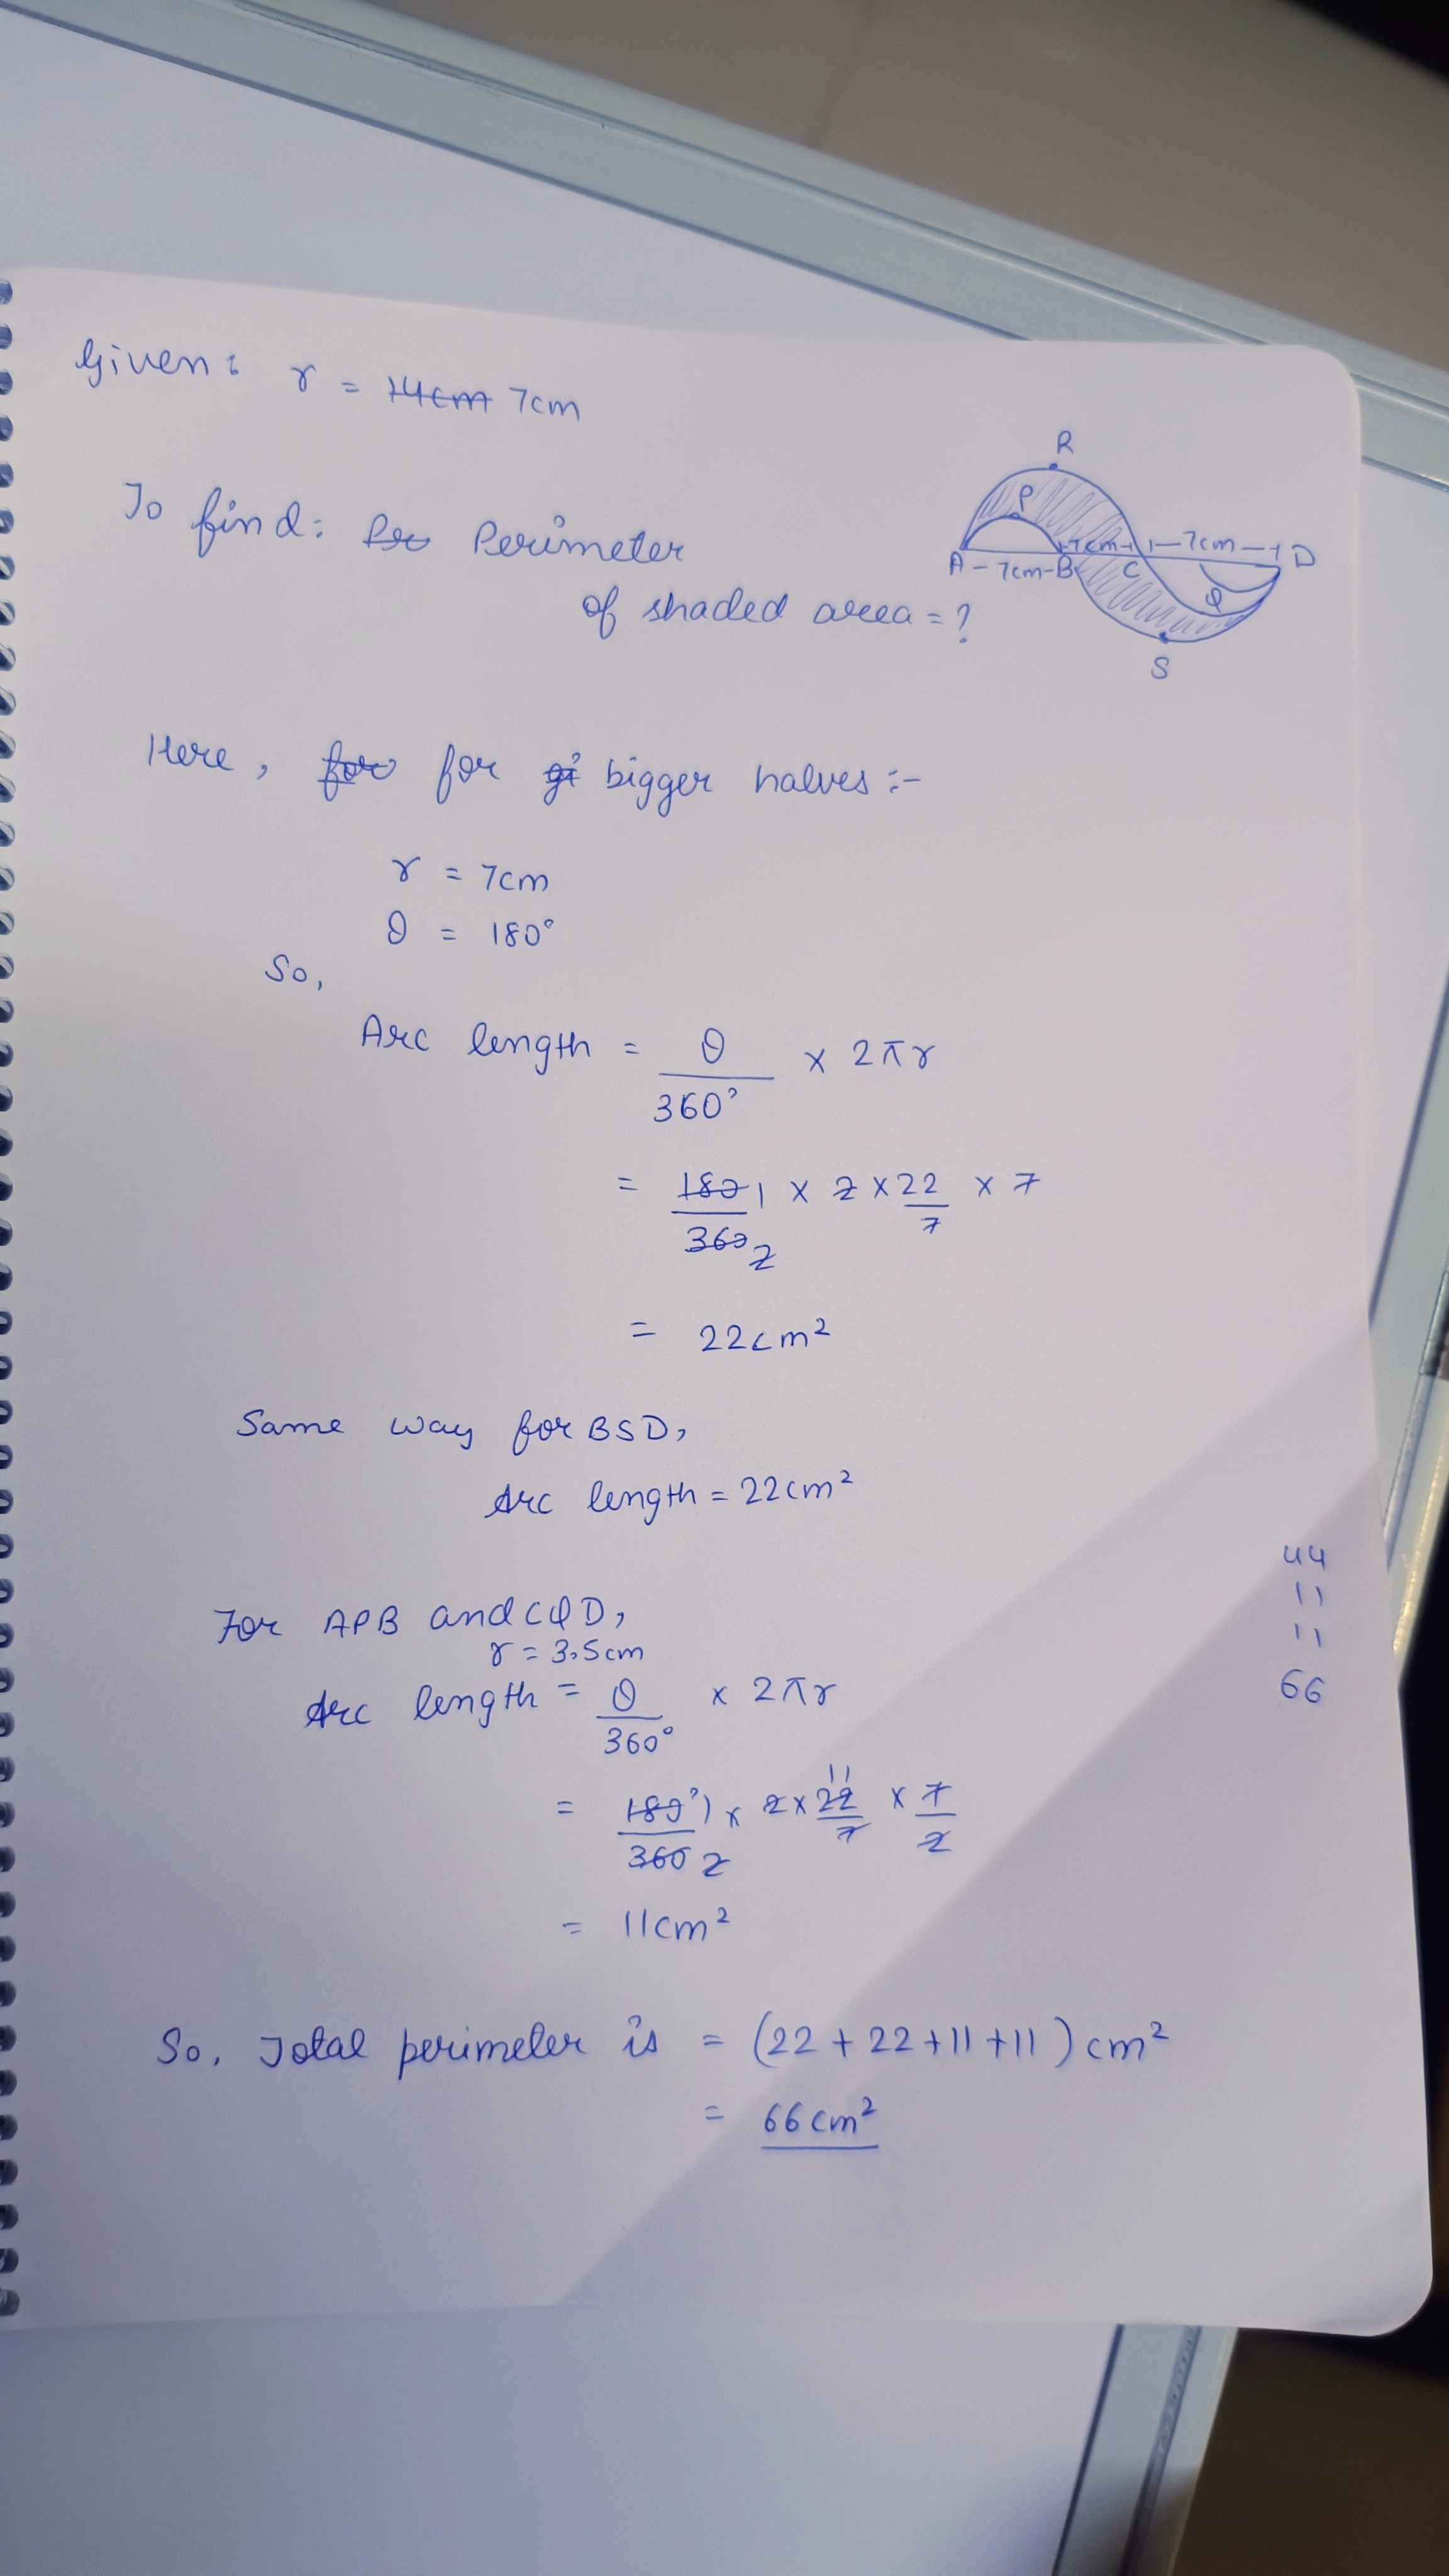 Given: r = 14cm 7cm
To find: Per Perimeter
of shaded area = ?
R
P
A - 7cm - B 7cm C 7cm D
Q
S
Here, for for gi bigger halves :-
r = 7cm
θ = 180°
So,
Arc length = θ/360° × 2πr
= 180 1/360 2 × 2 × 22/7 × 7
= 22cm²
Same way for BSD,
Arc length = 22cm²
For APB and CQD,
r = 3.5cm
Arc length = θ/360° × 2πr
= 180° 1/360 2 × 2 × 22 11/7 × 7/2
= 11cm²
44
11
11
66
So, Total perimeter is = (22 + 22 + 11 + 11) cm²
= 66cm²